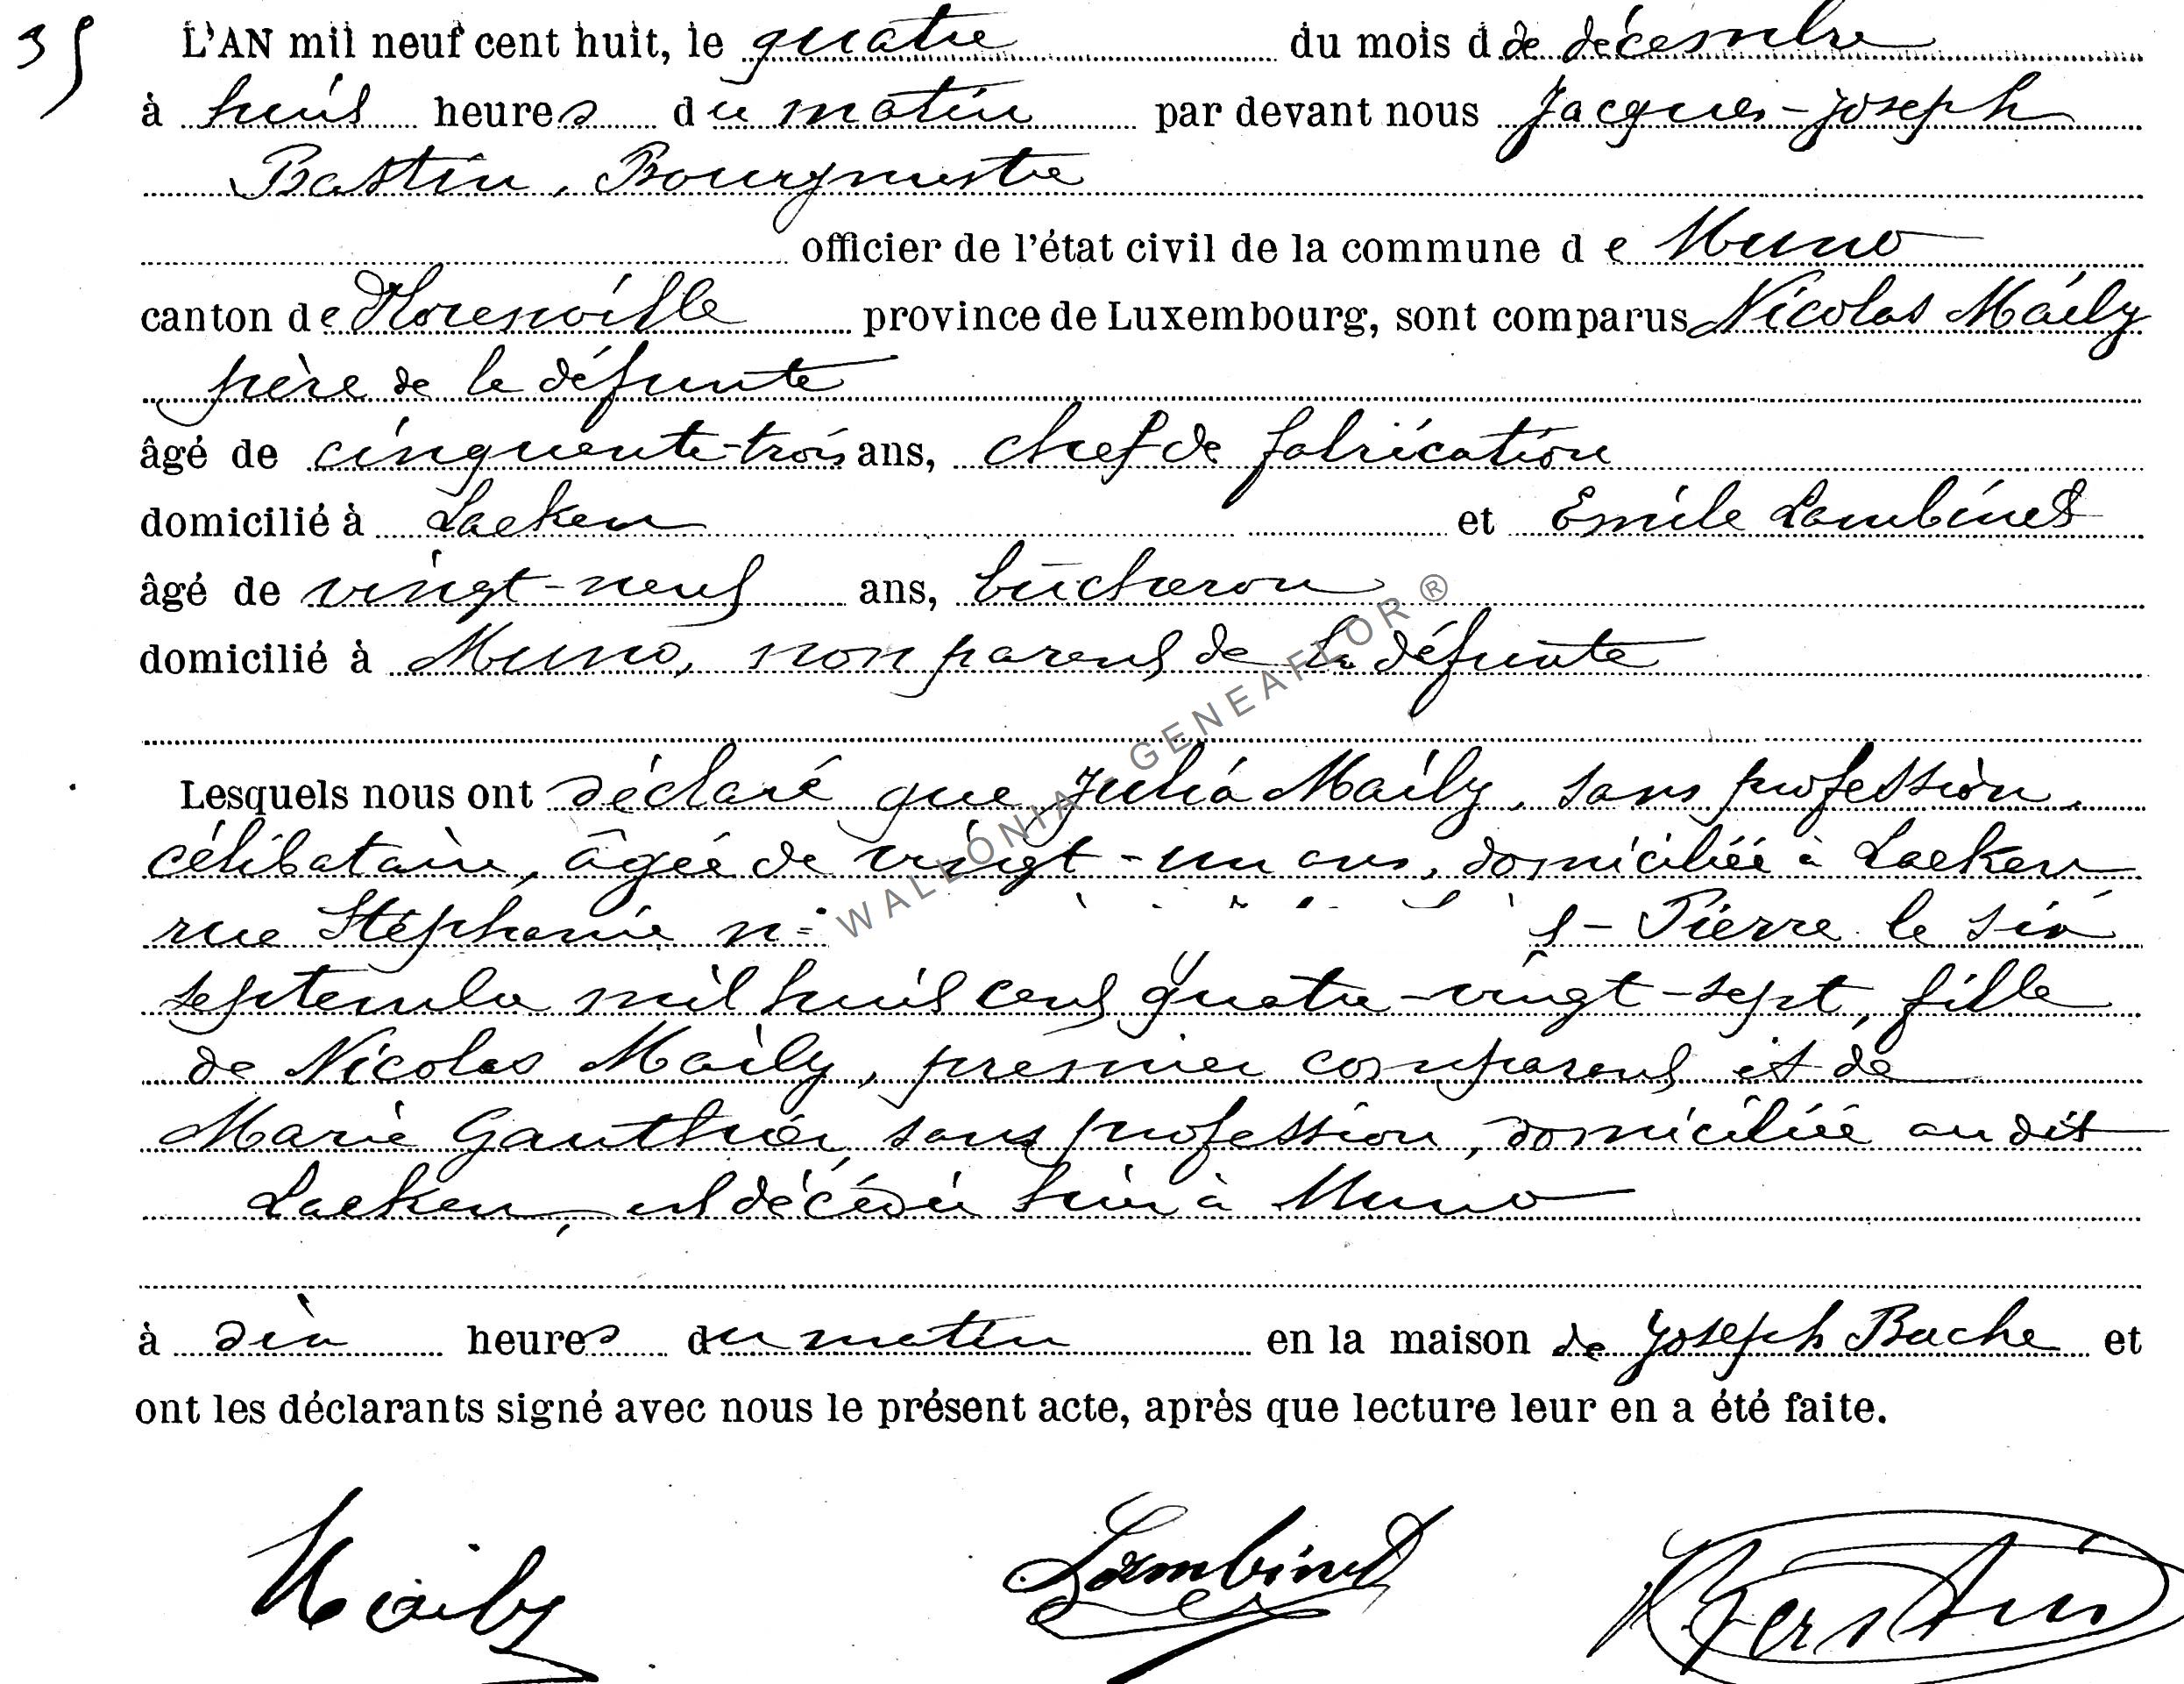 35
L'AN mil neuf cent huit, le quatre du mois d de décembre
à huit heures du matin par devant nous Jacques-Joseph
Bastin, Bourgmestre
officier de l'état civil de la commune de Muno
canton de Florenville province de Luxembourg, sont comparus Nicolas Maily
père de la défunte
âgé de cinquante-trois ans, chef de fabrication
domicilié à Laeken et Emile Lambinet
âgé de vingt-neuf ans, bûcheron
domicilié à Muno, non parent de la défunte
Lesquels nous ont déclaré que Julia Maily, sans profession,
célibataire, âgée de vingt-un ans, domiciliée à Laeken
rue Stéphanie n° t-Pierre le six
septembre mil huit cent quatre-vingt-sept, fille
de Nicolas Maily, premier comparant et de
Marie Gauthier, sans profession, domiciliée au dit
Laeken, est décédée hier à Muno
à dix heures du matin en la maison de Joseph Buche et
ont les déclarants signé avec nous le présent acte, après que lecture leur en a été faite.
Maily Lambinet Bastin
WALLONIA - GENEAFLOR ®